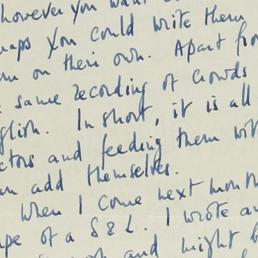 however you want
you could write them
on their own. Apart from
same recording of crowds
In short, it is all
and feeding them
add themselves.
When I come next month
of a S & L. I wrote
and might